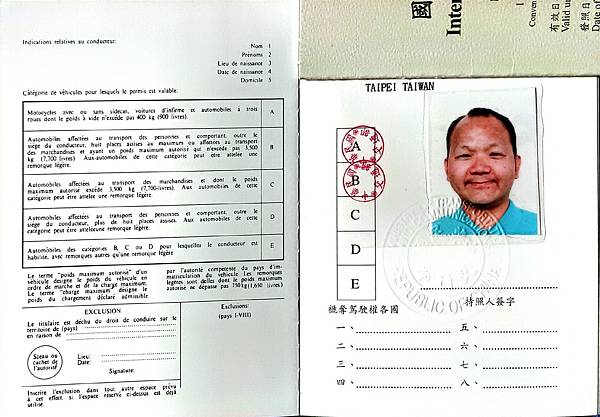 Indications relatives au conducteur:
Nom 1
Prénoms 2
Lieu de naissance 3
Date de naissance 4
Domicile 5
Catégorie de véhicules pour lesquels le permis est valable:
Motocycles avec ou sans sidecar, voitures d'infirme et automobiles à trois
roues dont le poids à vide n'excéde pas 400 kg (900 livres).
A
Automobiles affectées au transport des personnes et comportant, outre le
siège du conducteur, huit places assises au maximum ou affectées au transport
des marchandises et ayant un poids maximum autorisé qui n'excéde pas 3,500
kg (7,700 livres). Aux automobiles de cette catégorie peut être attelée une
remorque légère.
B
Automobiles affectées au transport des marchandises et dont le poids
maximum autorisé excéde 3,500 kg (7,700-livres). Aux automobiles de cette
catégorie peut être attelée une remorque légère.
C
Automobiles affectées au transport des personnes et comportant, outre le
siège du conducteur, plus de huit places assises. Aux automobiles de cette
catégorie peut être attelée une remorque légère.
D
Automobiles des catégories B, C ou D pour lesquelles le conducteur est
habilité, avec remorques autres qu'une remorque légère
E
Le terme "poids maximum autorisé" d'un
véhicule désigne le poids du véhicule en
ordre de marche et de la charge maximum.
Le terme "charge maximum" désigne le
poids du chargement déclaré admissible
par l'autorité compétente du pays d'im-
matriculation du véhicule Les remorques
légères sont celles dont le poids maximum
autorisé ne dépasse pas 750 kg (1,650 livres)
EXCLUSION
Le titulaire est déchu du droit de conduire sur le
territoire de (pays)
en raison de
Sceau ou
cachet de
l'autorité
Lieu:
Date:
Signature:
Inscrire l'exclusion dans tout autre espace prévu
à cet effet si l'espace réservé ci-dessus est déjà
utilisé.
Exclusions:
(pays I-VIII)
國
Inter
Conven
有效日
Valid un
發照日
Date of
TAIPEI TAIWAN
A
B
C
D
E
REPUBLIC OF
持照人簽字
褫奪駕駛權各國
一、 五、
二、 六、
三、 七、
四、 八、